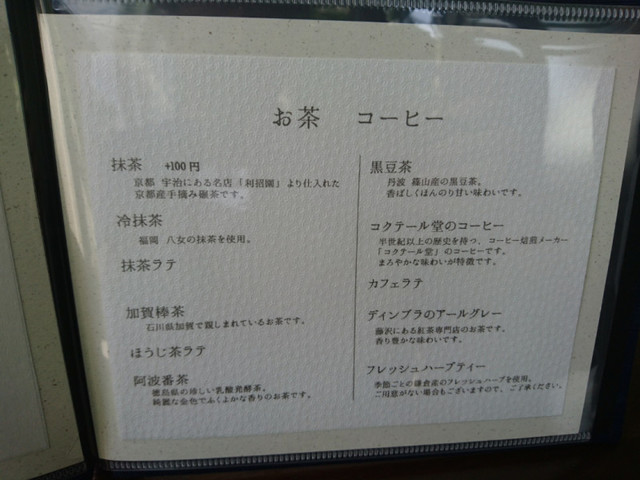 お茶 コーヒー
抹茶 +100円
京都 宇治にある名店「利招園」より仕入れた
京都産手摘み碾茶です。
冷抹茶
福岡 八女の抹茶を使用。
抹茶ラテ
加賀棒茶
石川県加賀で親しまれているお茶です。
ほうじ茶ラテ
阿波番茶
徳島県の珍しい乳酸発酵茶。
綺麗な金色でふくよかな香りのお茶です。
黒豆茶
丹波 篠山産の黒豆茶。
香ばしくほんのり甘い味わいです。
コクテール堂のコーヒー
半世紀以上の歴史を持つ、コーヒー焙煎メーカー
「コクテール堂」のコーヒーです。
まろやかな味わいが特徴です。
カフェラテ
ディンブラのアールグレー
藤沢にある紅茶専門店のお茶です。
香り豊かな味わいです。
フレッシュハーブティー
季節ごとの鎌倉産のフレッシュハーブを使用。
ご用意がない場合もございますので、ご了承ください。